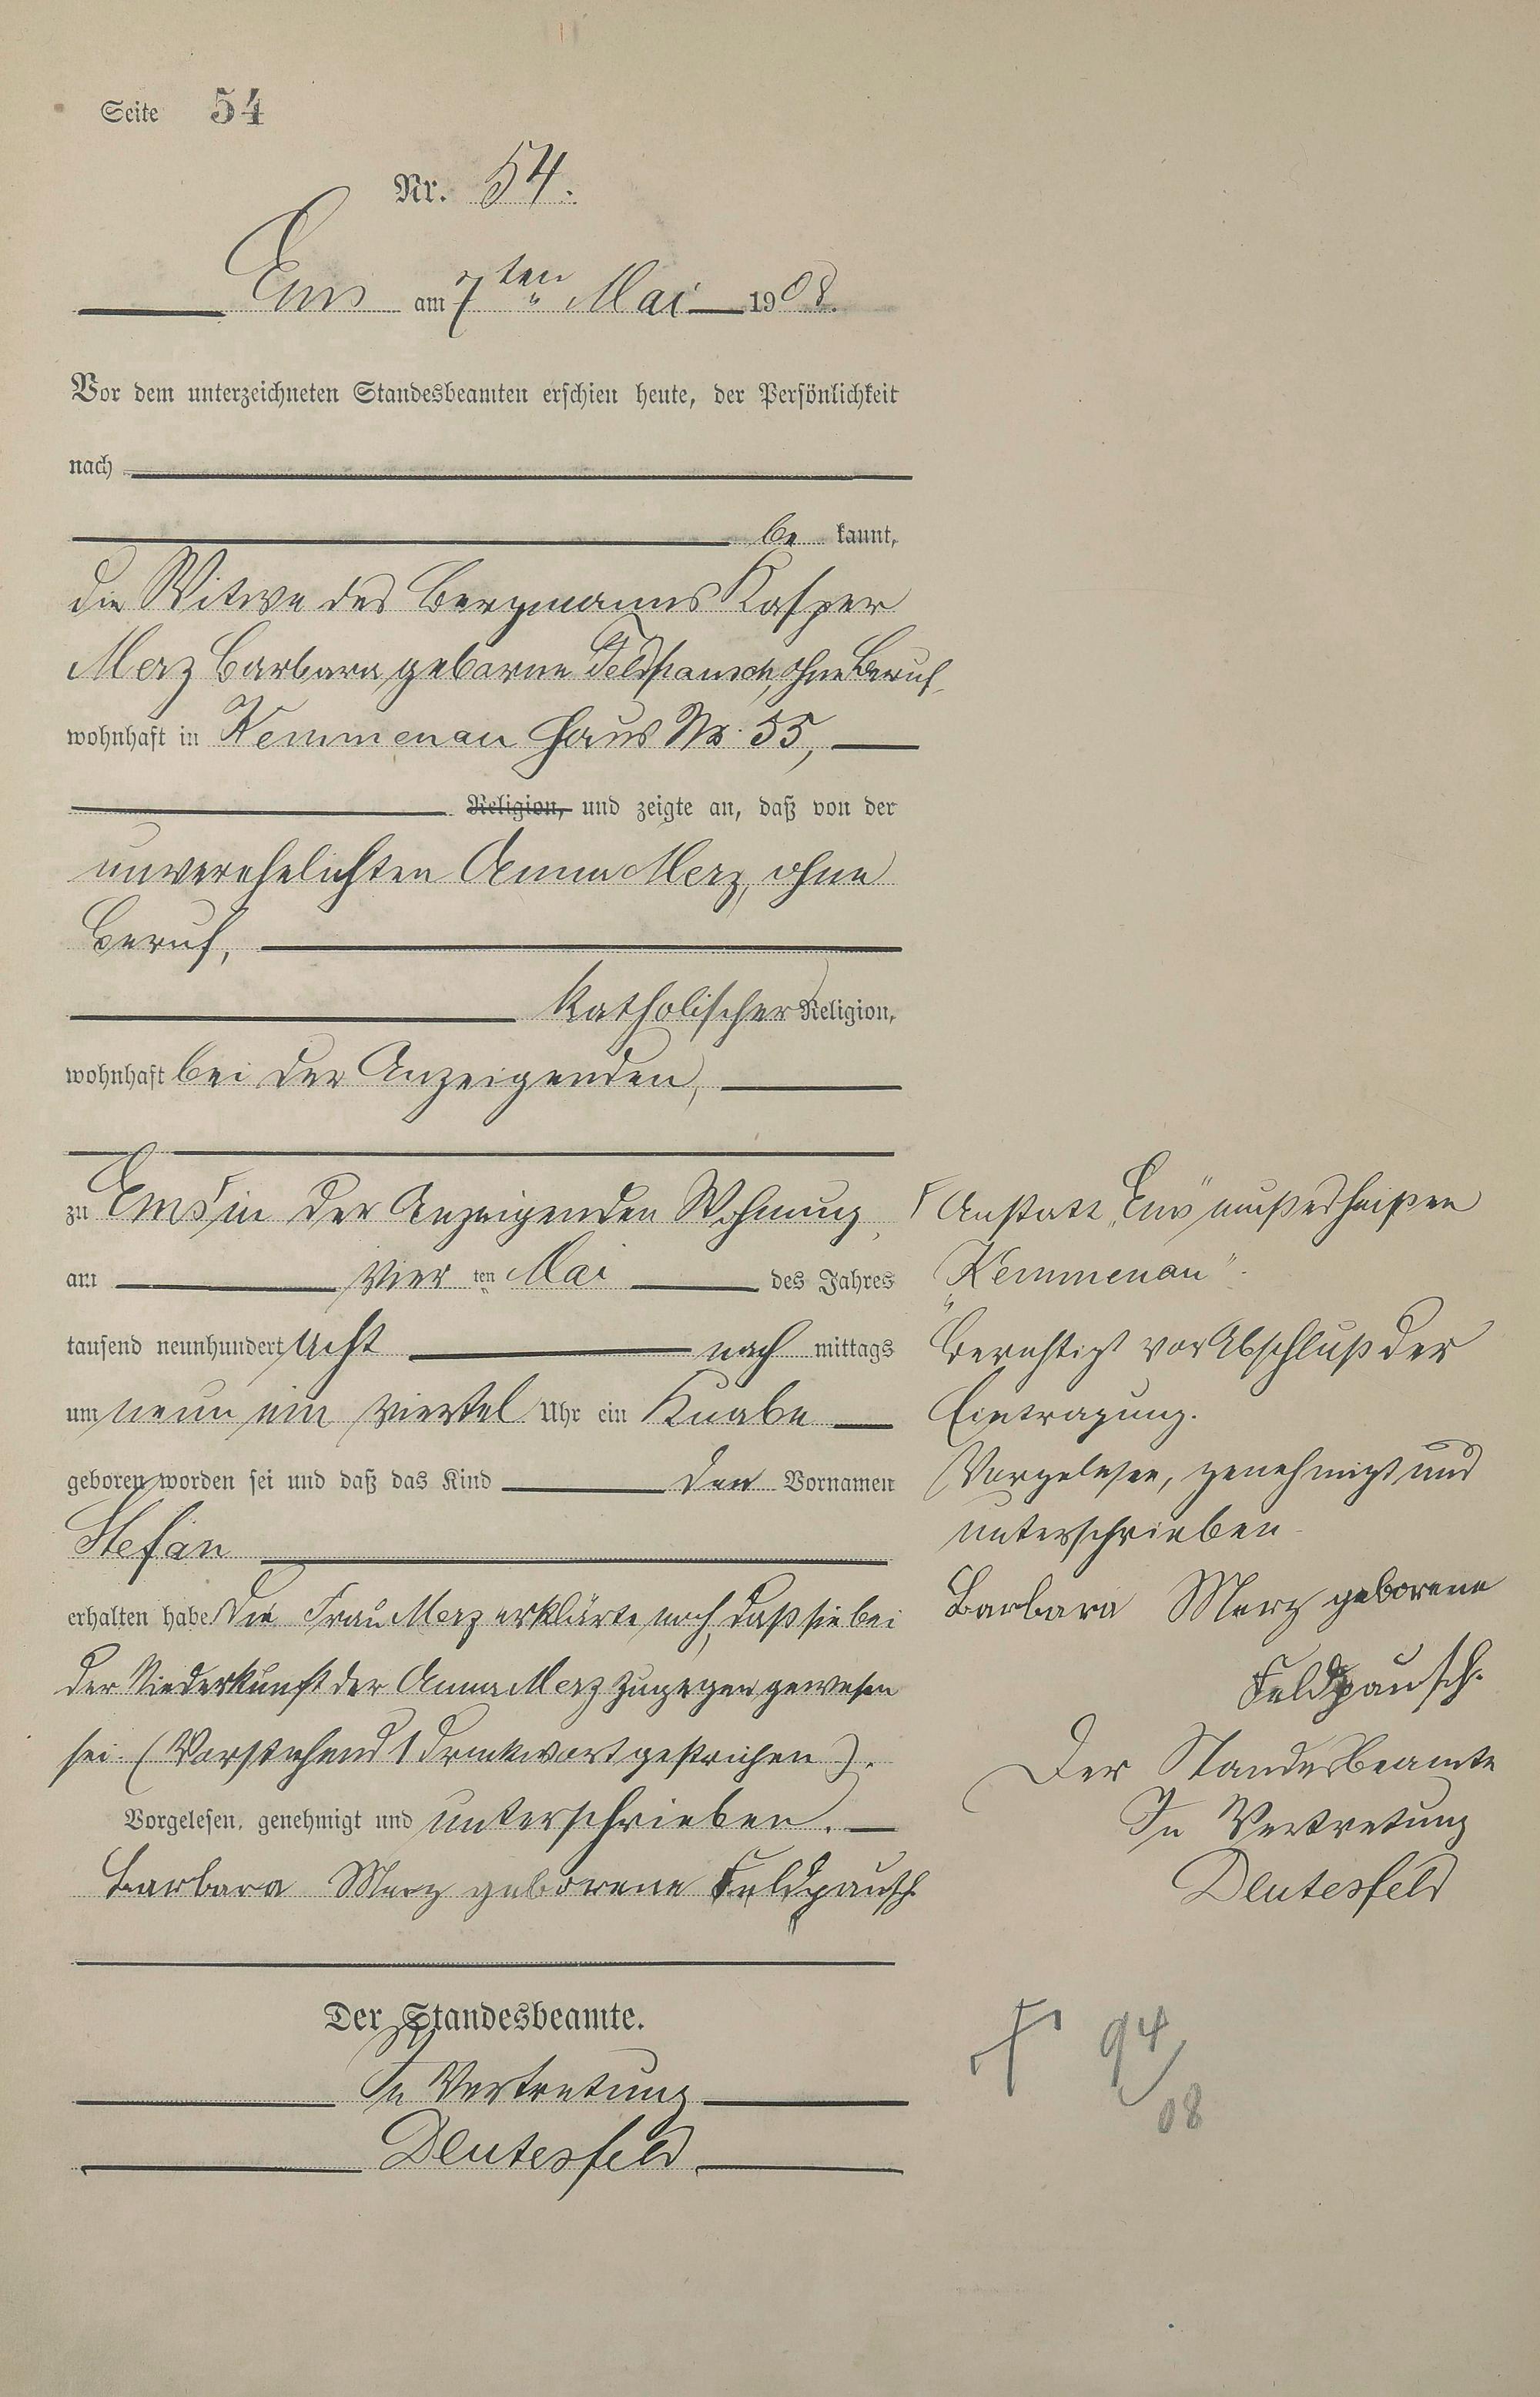 Seite 54
Nr. 54.
Ems am 7ten Mai 1908.
Vor dem unterzeichneten Standesbeamten erschien heute, der Persönlichkeit
nach
be kannt,
die Witwe des Bergmanns Kasper
Merz Barbara, geborne Feldpausch, ohne Beruf,
wohnhaft in Kemmenau Haus Nr. 55,
Religion, und zeigte an, daß von der
unverehelichten Anna Merz, ohne
Beruf,
katholischer Religion,
wohnhaft bei der Anzeigenden,
zu Ems in der Anzeigenden Wohnung,
am vier ten Mai des Jahres
tausend neunhundert acht nach mittags
um neun ein viertel Uhr ein Knabe
geboren worden sei und daß das Kind den Vornamen
Stefan
erhalten habe. Die Frau Merz erklärte noch, daß sie bei
der Niederkunft der Anna Merz zugegen gewesen
sei. (Vorstehend 1 Druckwort gestrichen).
Vorgelesen, genehmigt und unterschrieben.
Barbara Merz geborene Feldpausch
Der Standesbeamte.
In Vertretung
Deutesfeld
Anstatt „Ems" muß es heißen
„Kemmenau".
Berichtigt vor Abschluß der
Eintragung.
Vorgelesen, genehmigt und
unterschrieben
Barbara Merz geborene
Feldpausch.
Der Standesbeamte
In Vertretung
Deutesfeld
† 94/08